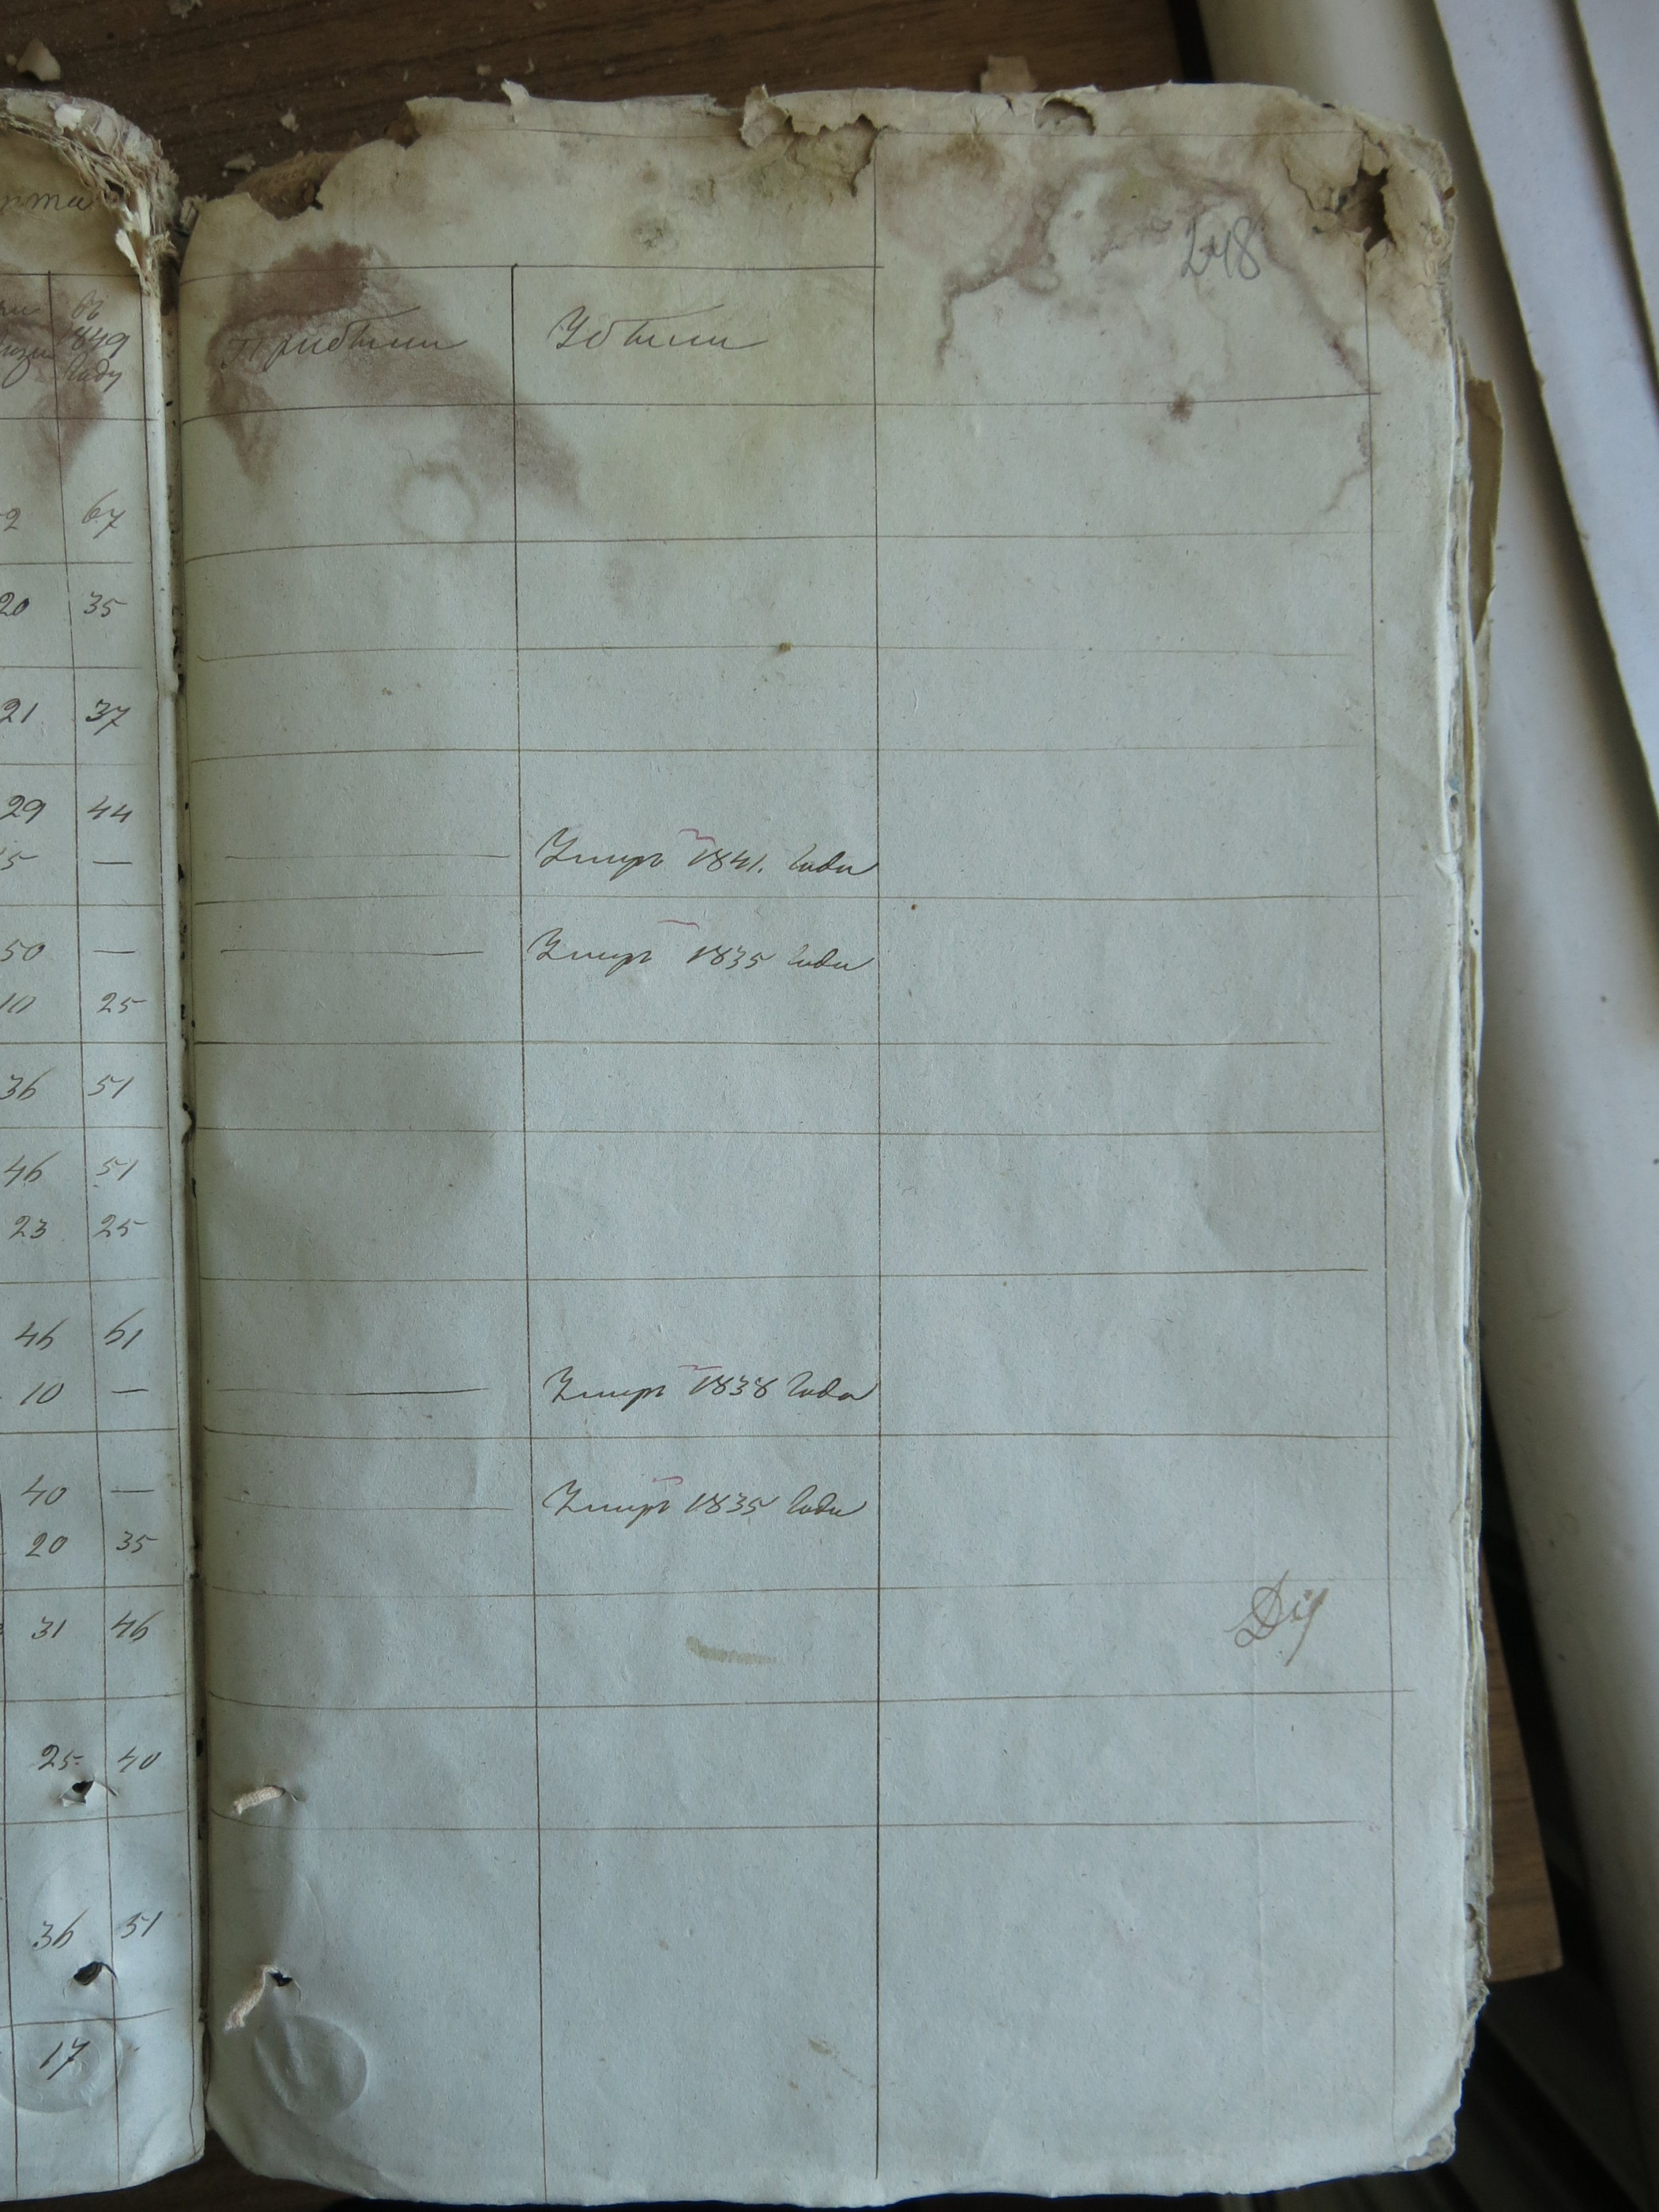 248
въ
1849
году
Прибыли
Убыли
67
20 35
21 37
29 44
5 —
Умеръ 1841. года
50 —
Умеръ 1835 года
10 25
36 51
46 51
23 25
46 61
10 —
Умеръ 1838 года
40 —
Умеръ 1835 года
20 35
31 46
25 40
36 51
17